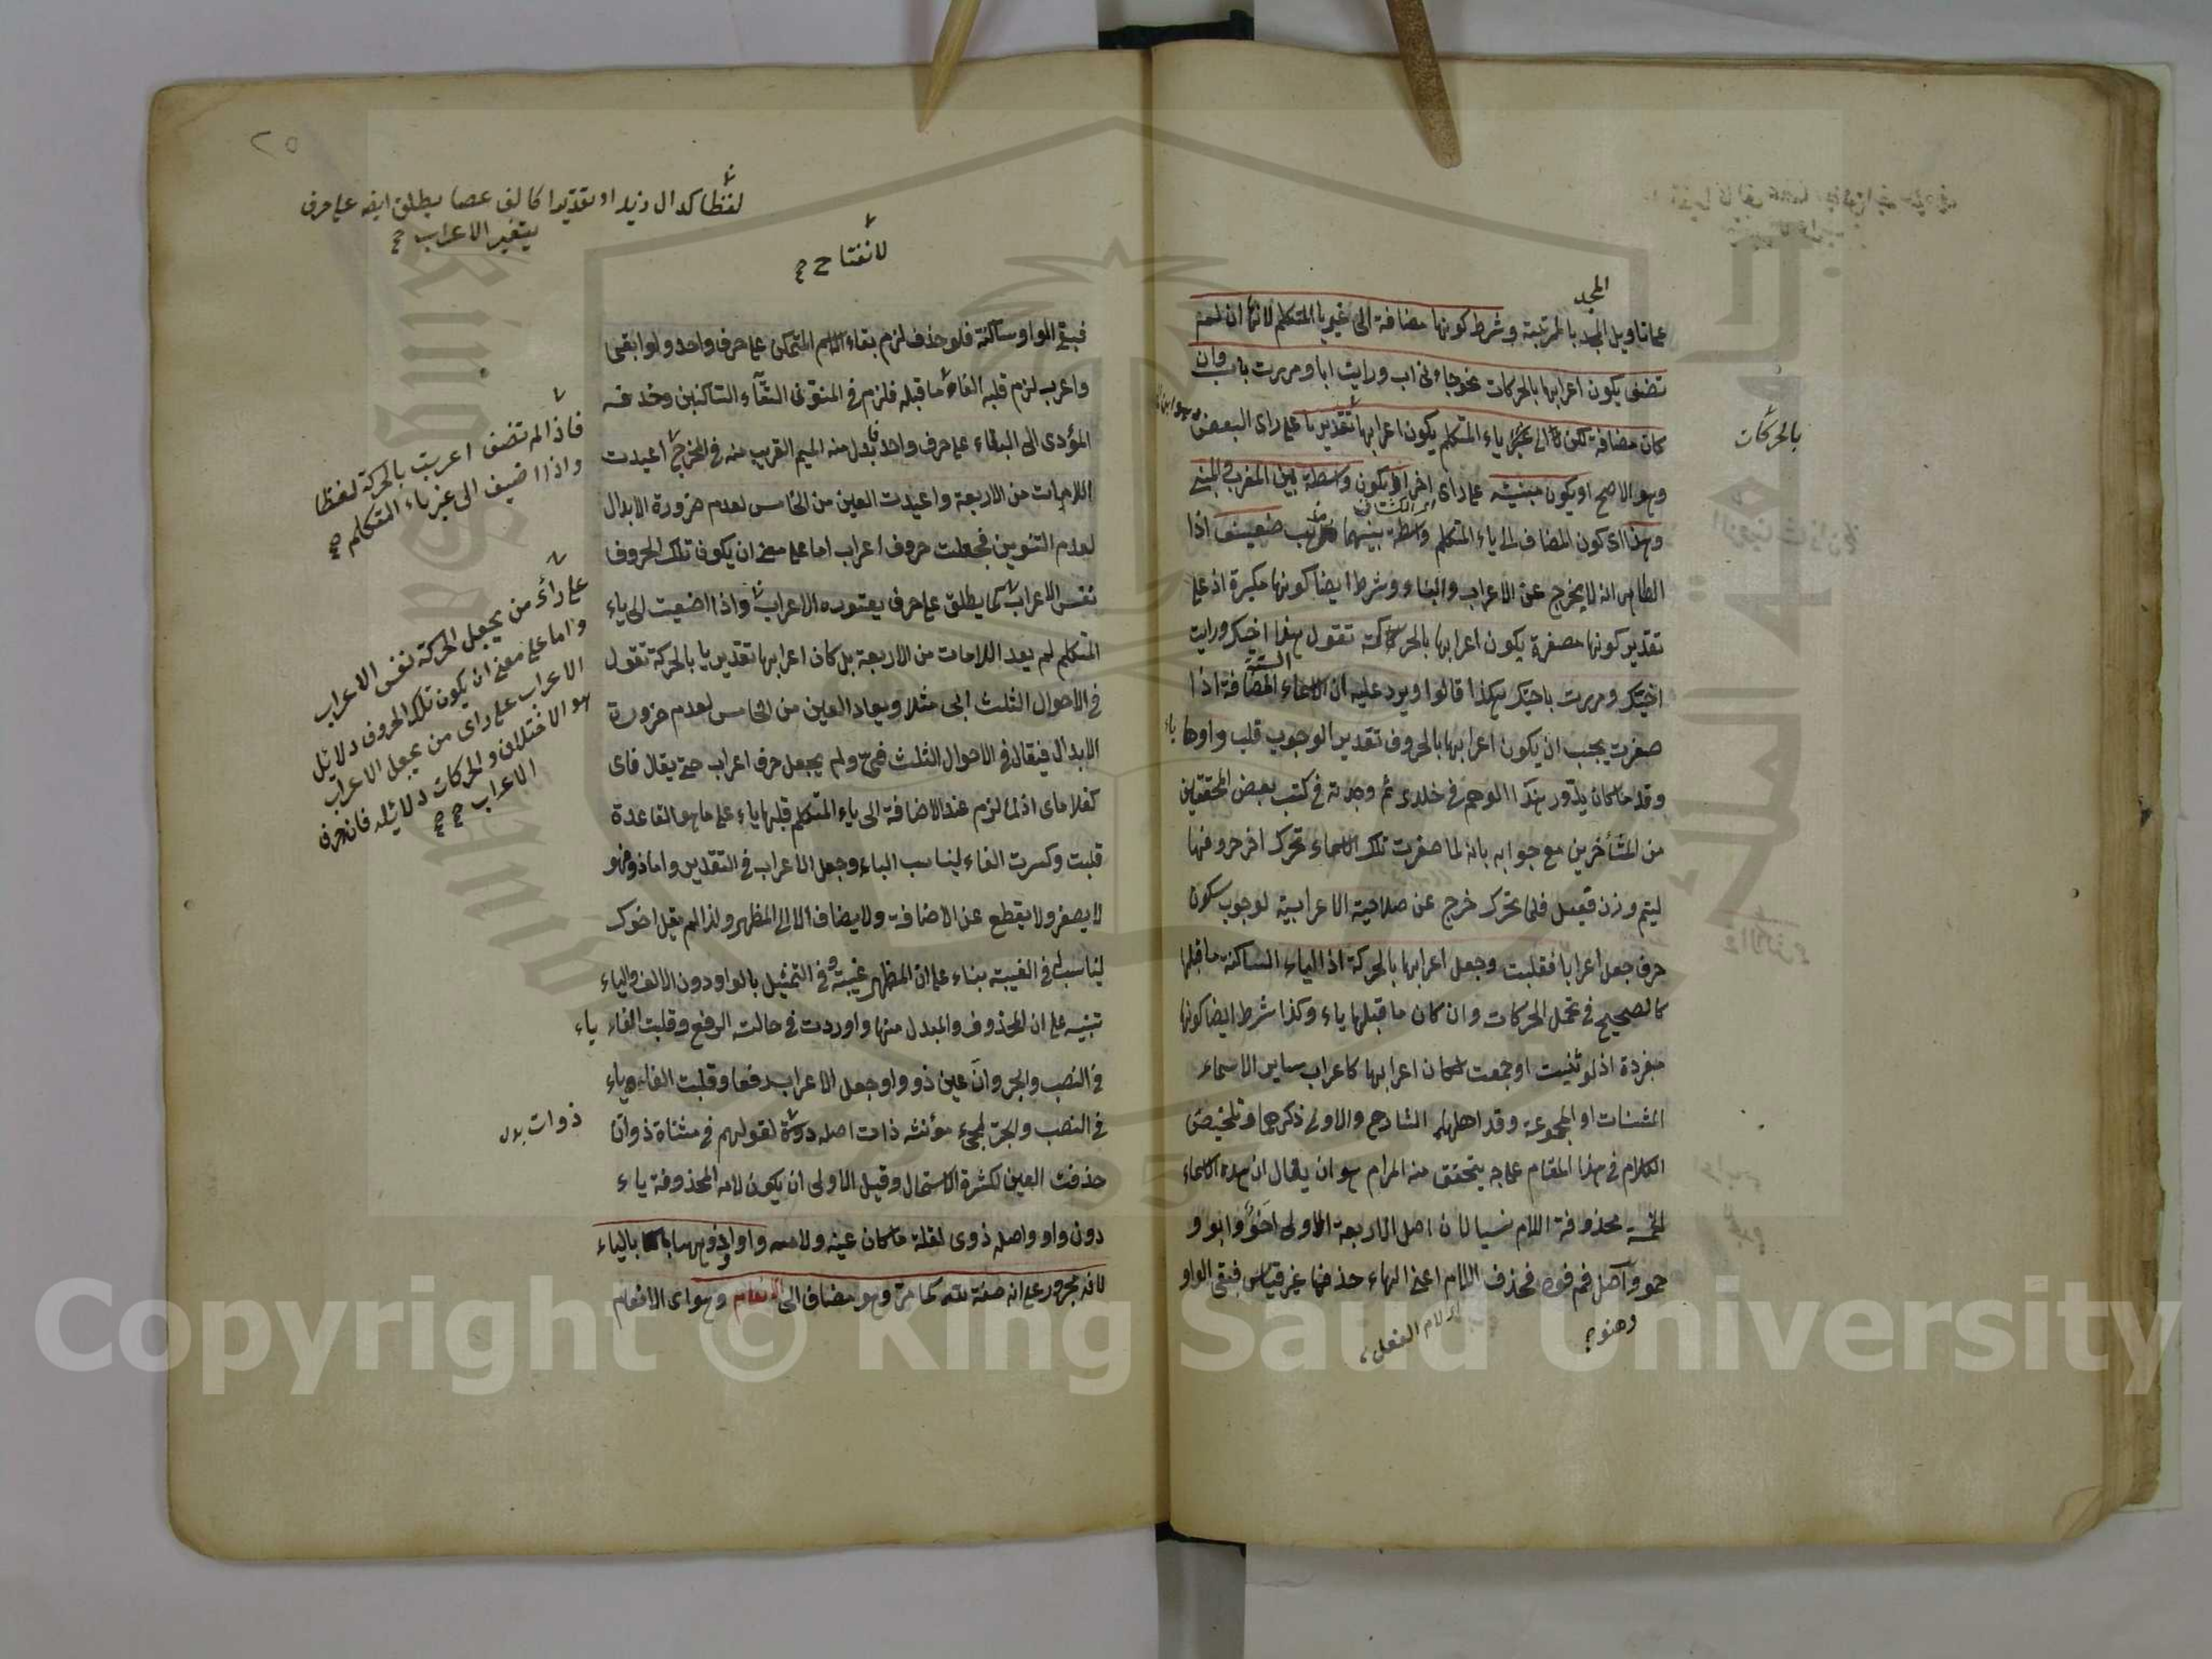 المجد
على تأويل المجد بالمرتبة وشرط كونها مضافة الى غير يا المتكلم لانها ان لم
تضف يكون اعرابها بالحركات نحو جاءنى اب ورايت ابا ومررت باب وان
كان مضافة لكن الى ياء المتكلم يكون اعرابها تقديريا على راى البعض
بالحركات
وهو الاصح او يكون مبنية على راى اخر او يكون واسطة بين المعرب والمبنى
وهذا اى كون المضاف الى ياء المتكلم واسطة بينهما مذهب ضعيف اذا
الظاهر انه لا يخرج عن الاعراب والبناء وشرط ايضا كونها مكبرة اذ على
تقدير كونها مصغرة يكون اعرابها بالحركة تقول هذا اخيك ورايت
الستة
اخيك ومررت باخيك هكذا قالوا ويرد عليه ان الاسماء المضافة اذا
صغرت يجب ان يكون اعرابها بالحروف تقدير الوجوب قلب واوها ياء
وقد كان يدور هذا الوهم فى خلدى ثم وجدته فى كتب بعض المحققين
من المتأخرين مع جوابه بانه لما صغرت تلك الاسماء تحرك اخر حروفها
ليتم وزن فعيل فلما تحرك خرج عن صلاحية الاعرابية لوجوب سكون
حرف جعل اعرابا فقلبت وجعل اعرابها بالحركة اذ الياء الساكنة ما قبلها
كالصحيح فى تحمل الحركات وان كان ما قبلها ياء وكذا شرط ايضا كونها
مفردة اذ لو ثنيت او جمعت لكان اعرابها كاعراب ساير الاسماء
المثنات او المجموعة وقد اهملها الشارح والاولى ذكرهما وتلخيص
الكلام فى هذا المقام على وجه يتحقق منه المرام هو ان يقال ان هذه الاسماء
الخمسة محذوفة اللام نسيا لان اصل الاربعة الاولى اخو وابو و
حمو واصل فم فوه فحذف اللام اعنى الهاء حذفا غير قياس فبقى الواو
وهنو
اى لام الفعل
٢٥
لفظا كدال زيد او تقديرا كالف عصا يطلق ايضا على حرف
يتغير الاعراب صح
لانفتاح صح
فبقى الواو ساكنة فلو حذف لزم بقاء الاسم المتمكن على حرف واحد ولو ابقى
واعرب لزم قلبه الفا ما قبله فلزم فى المنون التقاء الساكنين وحذفه
المؤدى الى البقاء على حرف واحد فابدل منه الميم القريب منه فى المخرج اعيدت
اللامات من الاربعة واعيدت العين من الخامس لعدم ضرورة الابدال
لعدم التنوين فجعلت حروف اعراب اما على معنى ان يكون تلك الحروف
نفس الاعراب كما يطلق على حرف يعتوره الاعراب واذا اضيفت الى ياء
المتكلم لم يعد اللامات من الاربعة بل كان اعرابها تقديريا بالحركة تقول
فى الاحوال الثلث ابى مثلا ويعاد العين من الخامس لعدم ضرورة
الابدال فيقال فى الاحوال الثلث فىّ ولم يجعل حرف اعراب حتى يقال فاى
كغلاماى اذ لما لزم عند الاضافة الى ياء المتكلم قلبها ياء على ما هو القاعدة
قلبت وكسرت الفاء ليناسب الياء وجعل الاعراب فى التقدير واما ذو فهو
لا يصغر ولا يقطع عن الاضافة ولا يضاف الا الى المظهر ولذا لم يقل اخوك
ليناسبه فى الغيبة بناء على ان المظهر غيبة وفى التمثيل بالواو دون الالف والياء
تنبيه على ان المحذوف والمبدل منها واو اوردت فى حالت الرفع وقلبت الفاء ياء
فى النصب والجر وان عين ذو واو جعل الاعراب رفعا وقلبت الفا وياء
فى النصب والجر لمجىء مؤنثه ذات اصله ذوات لقولهم فى مثناة ذواتا
حذفت العين لكثرة الاستعمال وقيل الاولى ان يكون لامه المحذوفة ياء
دون واو واصله ذوى لقلة ما كان عينه ولامه واوا وذو ههنا بالياء
لانه مجرور على انه صفة لله كما مر وهو مضاف الى الانعام وهو اى الانعام
فاذا لم تضف اعربت بالحركة لفظا
واذا اضيف الى غير ياء المتكلم صح
على رأى من يجعل الحركة نفس الاعراب
واما على معنى ان يكون تلك الحروف دلائل
الاعراب على راى من يجعل الاعراب
هو الاختلاف والحركات دلائله فان حرف
الاعراب صح صح
ذوات بدل
Copyright © King Saud University